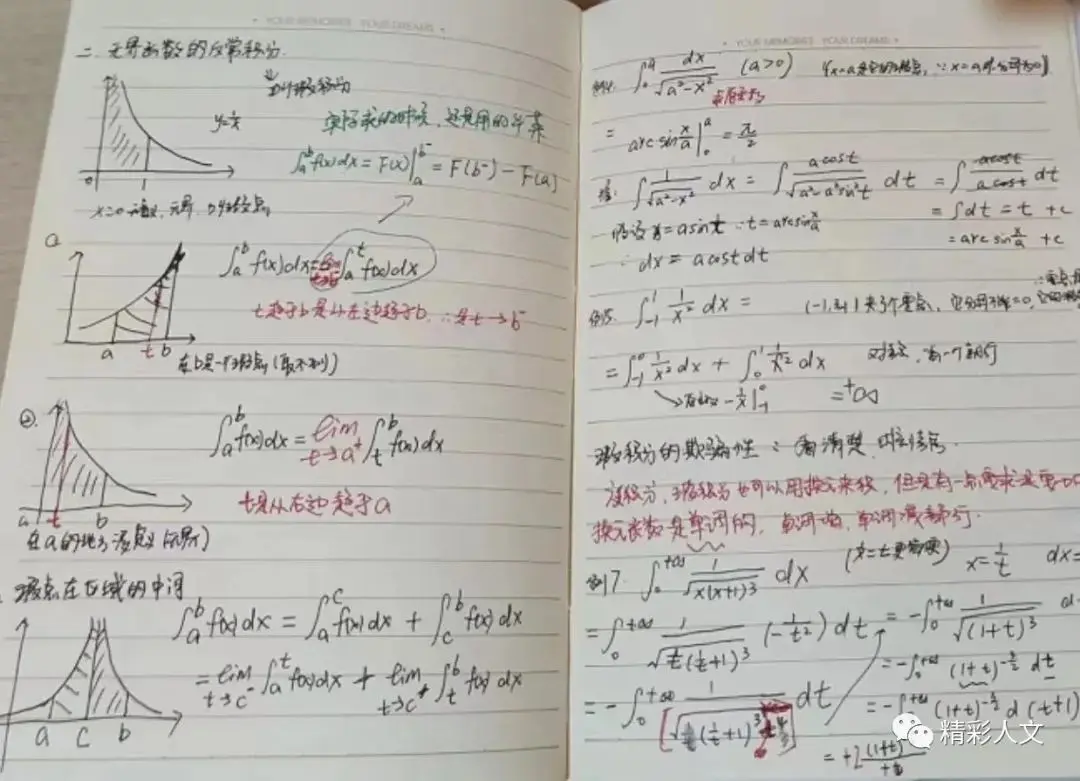 YOUR MEMORIES YOUR DREAMS
二、无界函数的反常积分
y=1/x
实际求的时候,还是用的牛莱
∫_a^b f(x)dx = F(x)|_a^{b^-} = F(b^-) - F(a)
0 1
x=0 无界
①
∫_a^b f(x)dx = lim_{t→b^-} ∫_a^t f(x)dx
t趋于b是从左边趋于b,∴是t→b^-
a t b
在b是一个瑕点(取不到)
②.
∫_a^b f(x)dx = lim_{t→a^+} ∫_t^b f(x)dx
t是从右边趋于a
a t b
在a的地方没意义(无界)
瑕点在区域的中间
∫_a^b f(x)dx = ∫_a^c f(x)dx + ∫_c^b f(x)dx
= lim_{t→c^-} ∫_a^t f(x)dx + lim_{t→c^+} ∫_t^b f(x)dx
a c b
YOUR MEMORIES YOUR DREAMS
例4. ∫_0^a dx/√(a²-x²) (a>0)
= arcsin x/a |_0^a = π/2
∫ 1/√(a²-x²) dx = ∫ acost/√(a²-a²sin²t) dt = ∫ acost/acost dt
假设x=asint ∴t=arcsin x/a = ∫dt = t + c
∴dx = acostdt = arcsin x/a + c
例5. ∫_{-1}^1 1/x² dx =
= ∫_{-1}^0 1/x² dx + ∫_0^1 1/x² dx
-1/x|_{-1}^0 = +∞
瑕积分的欺骗性:看清楚
瑕积分也可以用换元来积,但是有一点要求是
换元函数是单调的,单调增,单调减都行.
例7. ∫_0^{+∞} 1/√(x(x+1)³) dx x=1/t dx=
= ∫_0^{+∞} 1/√(1/t(1/t+1)³) (-1/t²) dt = -∫_0^{+∞} 1/√((1+t)³) d
= -∫_0^{+∞} (1+t)^{-3/2} dt
= -∫_0^{+∞} 1/[√(1/t(1/t+1)³ t⁴)] dt = -∫_0^{+∞} (1+t)^{-3/2} d(t+1)
精彩人文